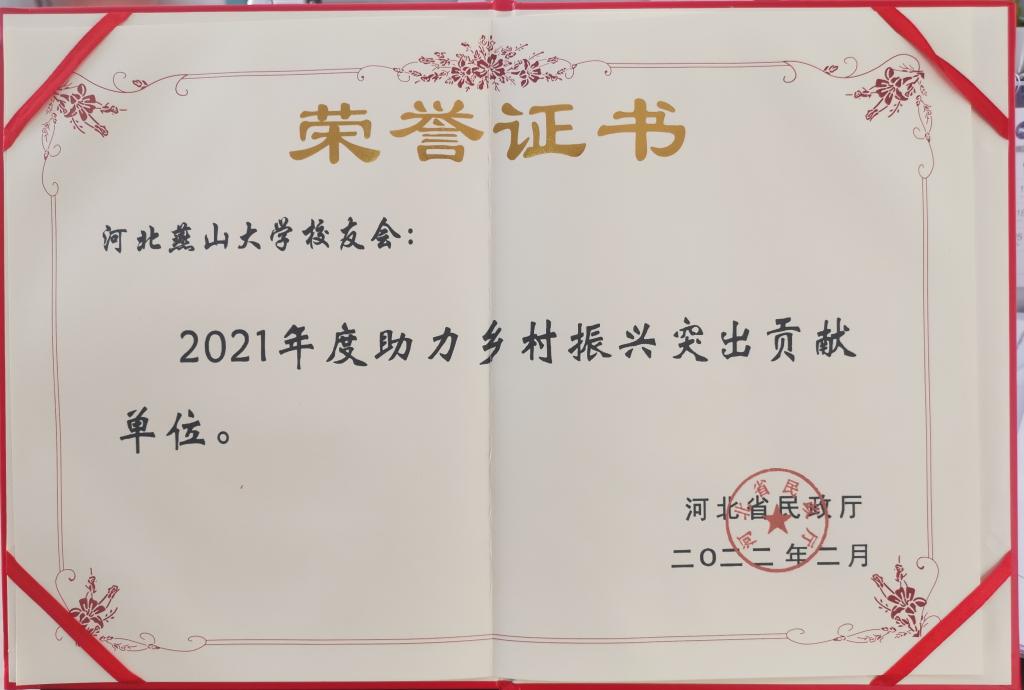 荣誉证书
河北燕山大学校友会：
2021年度助力乡村振兴突出贡献
单位。
河北省民政厅
二〇二二年二月
河北省民政厅